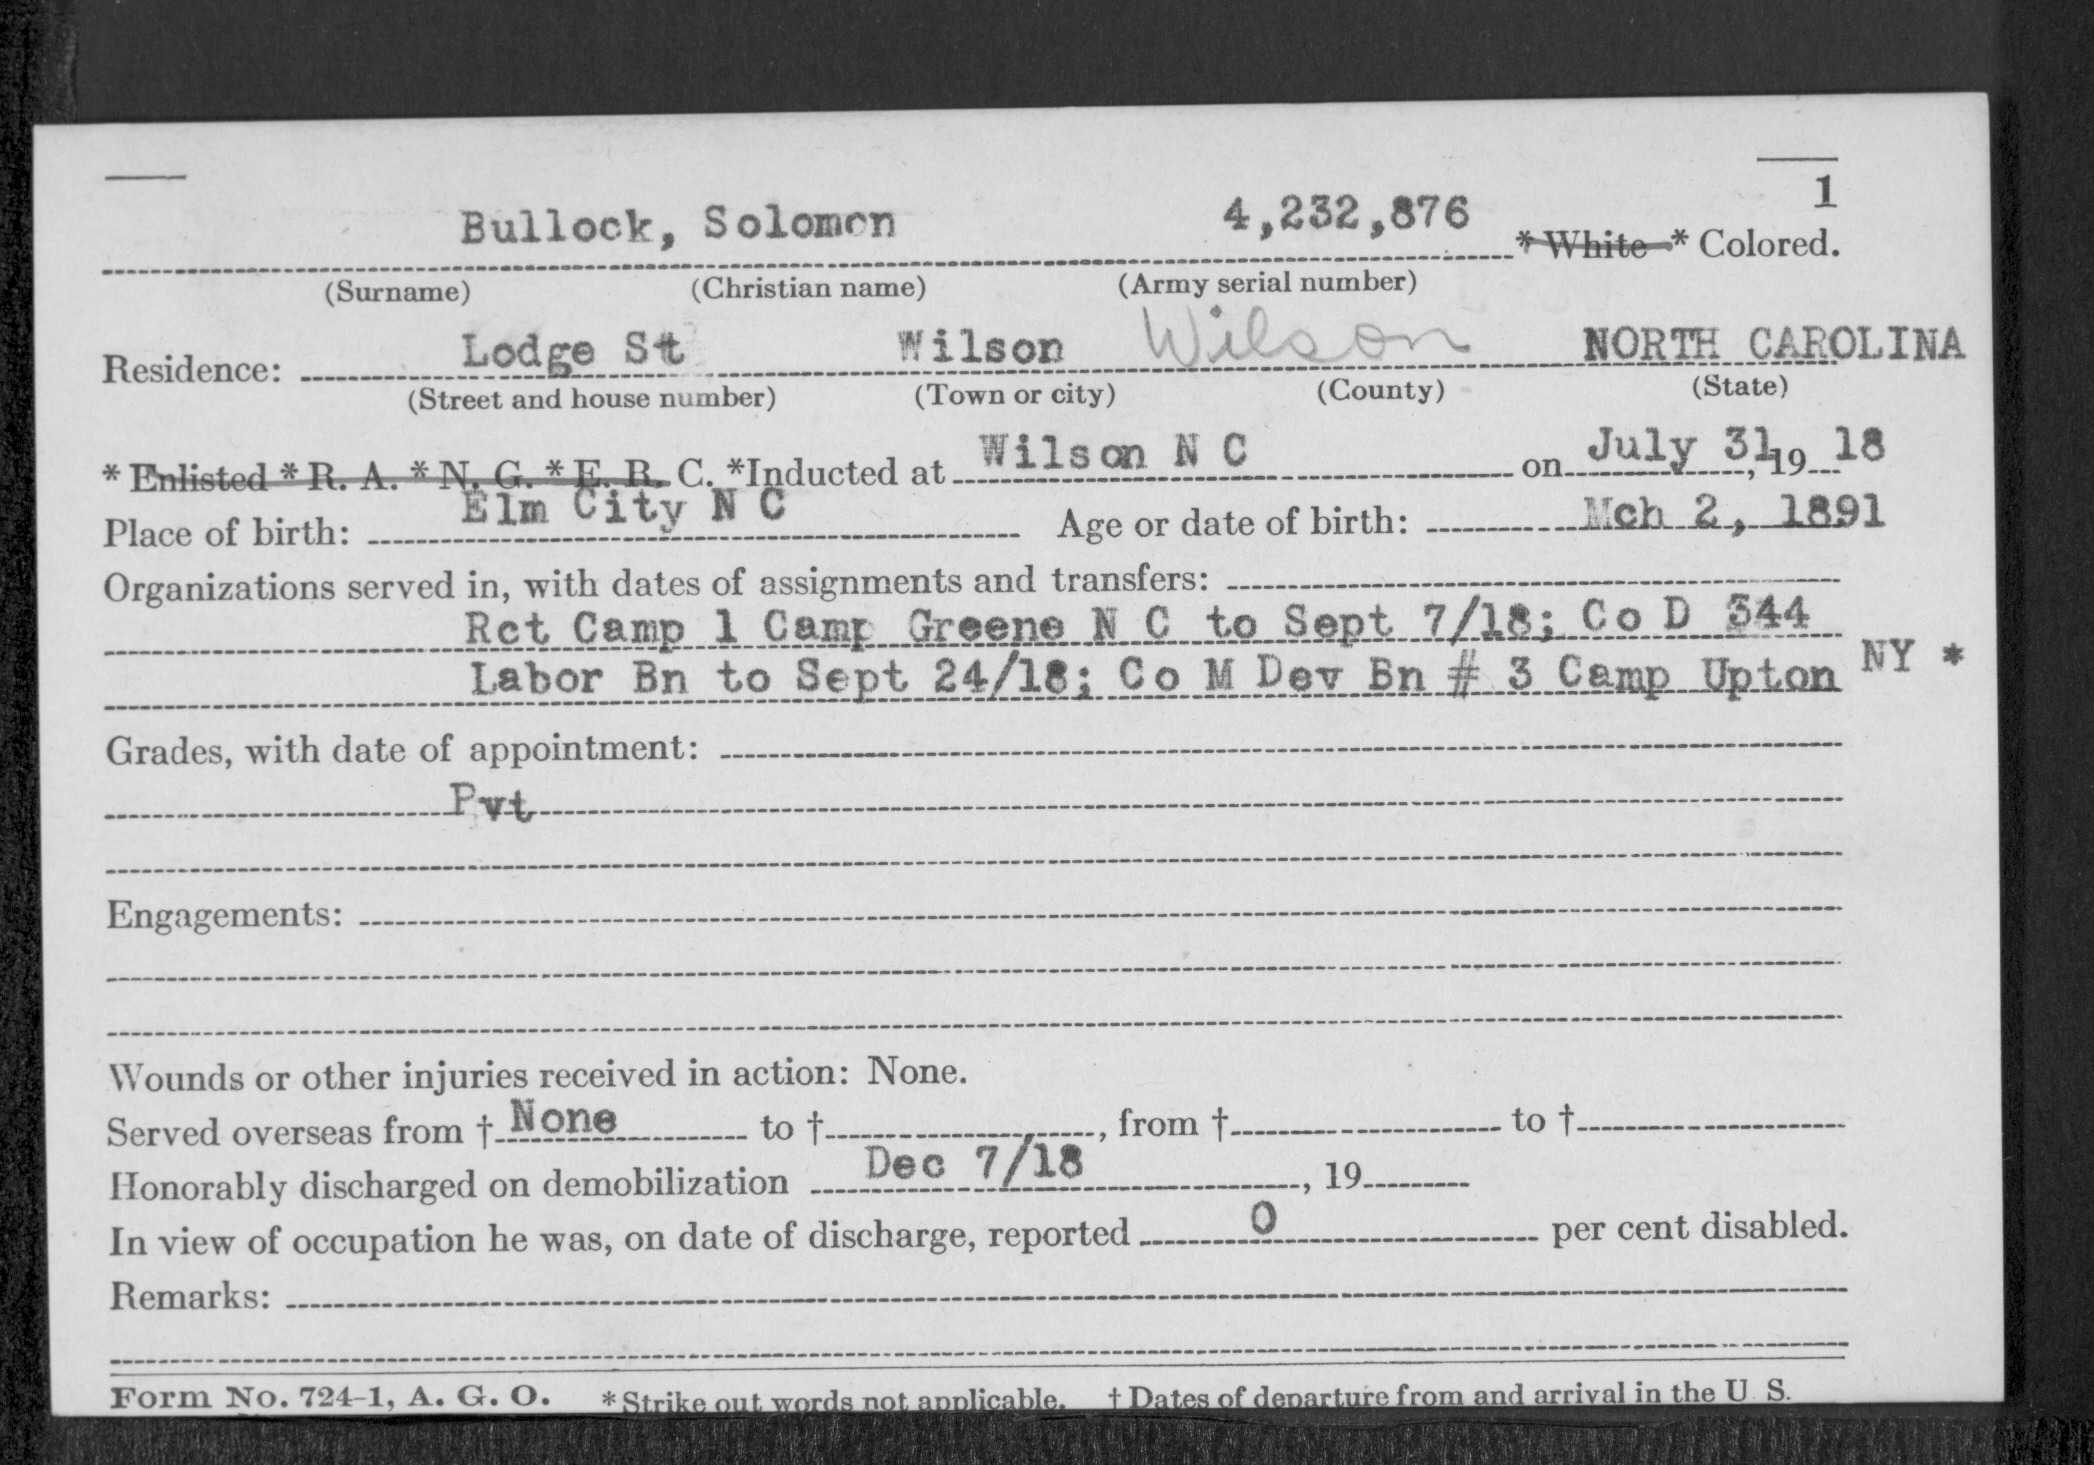 1
Bullock, Solomon 4,232,876 * White * Colored.
(Surname) (Christian name) (Army serial number)
Residence: Lodge St Wilson Wilson NORTH CAROLINA
(Street and house number) (Town or city) (County) (State)
* Enlisted * R. A. * N. G. * E. R. C. *Inducted at Wilson N C on July 31, 19 18
Place of birth: Elm City N C Age or date of birth: Mch 2, 1891
Organizations served in, with dates of assignments and transfers:
Rct Camp 1 Camp Greene N C to Sept 7/18; Co D 344
Labor Bn to Sept 24/18; Co M Dev Bn # 3 Camp Upton NY *
Grades, with date of appointment:
Pvt
Engagements:
Wounds or other injuries received in action: None.
Served overseas from † None to †, from † to †
Honorably discharged on demobilization Dec 7/18, 19
In view of occupation he was, on date of discharge, reported 0 per cent disabled.
Remarks:
Form No. 724-1, A. G. O. * Strike out words not applicable. † Dates of departure from and arrival in the U S.